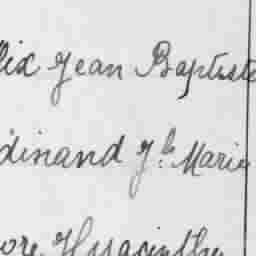 lix Jean Baptiste
dinand Jh Marie
ore Hyacinthe